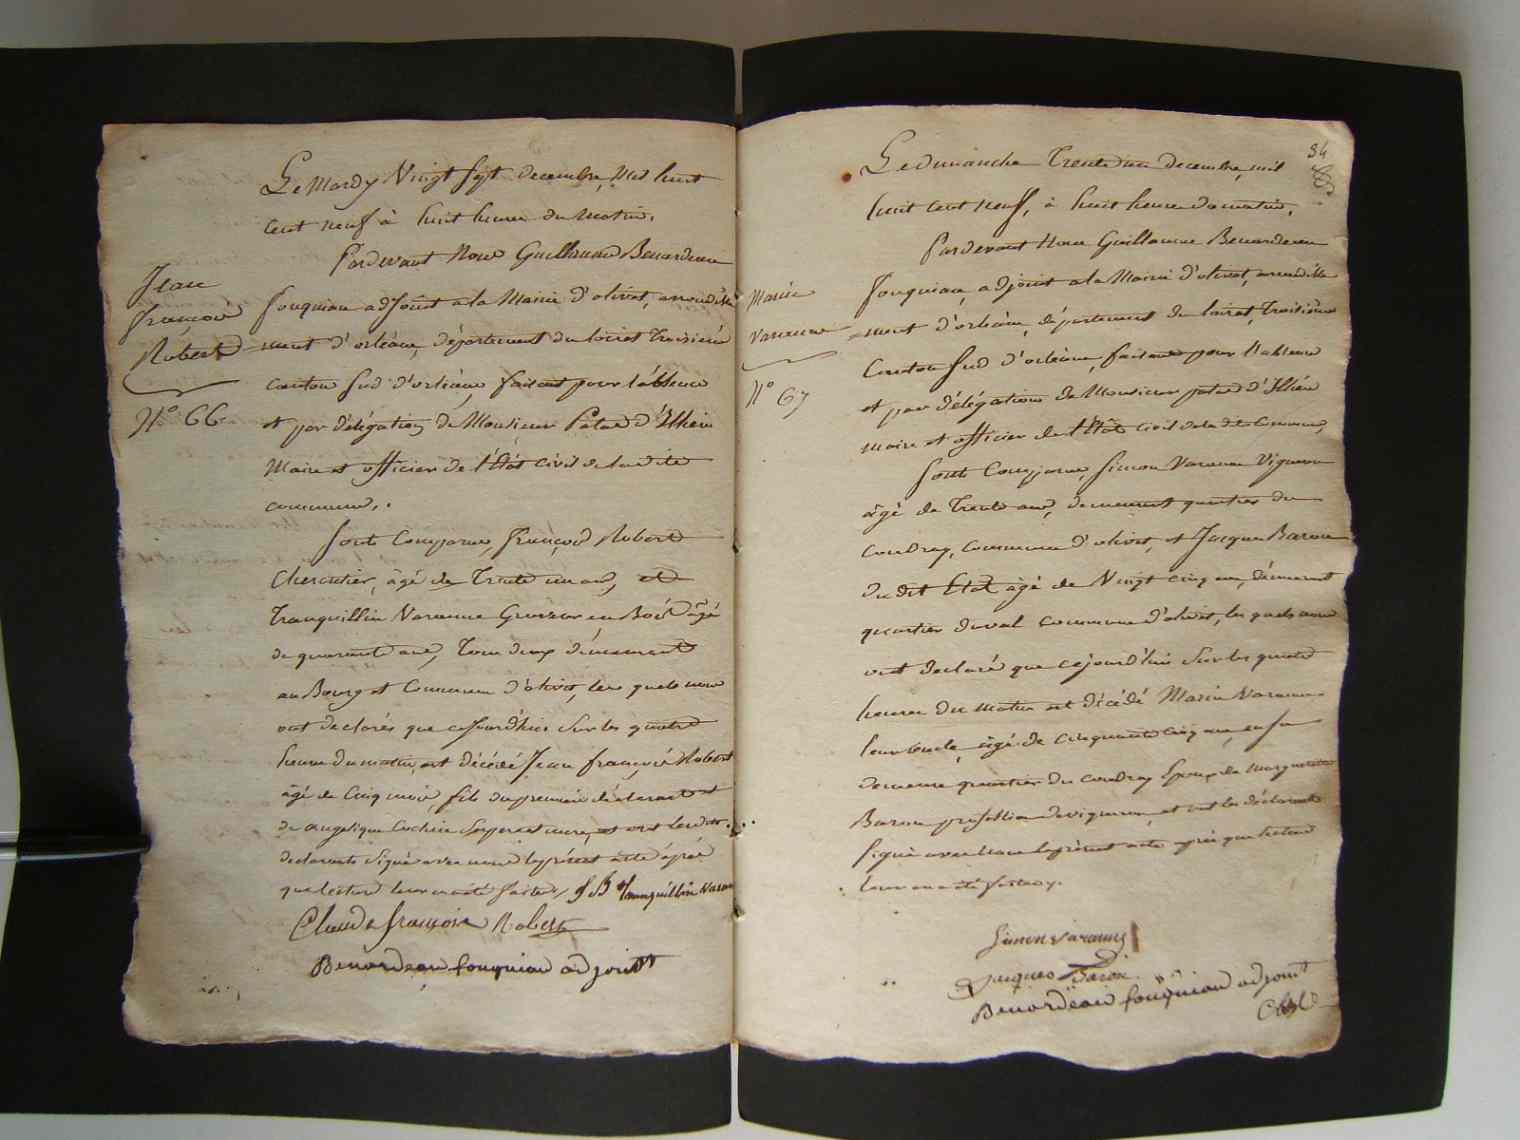 Le Mardy Vingt Sept decembre, Mil huit
cent neuf à huit heures du Matin,
Pardevant Nous Guillaume Benardeau
Jean
françois
Robert
N° 66
fouquiau adjoint a la Mairie d'olivet, arrondisse
-ment d'orléans, département du loiret Troisieme
canton sud d'orléans, faisant pour l'absence
et par délégation de Monsieur Patas d'Illiers
Maire et officier de l'état civil de la dite
commune,.
Sont Comparus, françois Robert
Chercutier, âgé de Trente un ans, et
Tranquillin Varenne Grossier en Bois âgé
de quarante ans, Tous deux démeurants
au Bourg et Commune d'olivet, les quels nous
ont declarés que cejourd'hui sur les quatre
heures du matin, est décédé Jean françois Robert
âgé de Cinq mois fils du premier déclarant et
de angelique Cochin Ses pere et mere, et ont les dits
declarants Signé avec nous le présent acte après
que lecture leur en a été faite, / Tranquillin Varenne
Claude françois Robert
Benardeau fouquiau adjoint
34
Le dimanche Trente un decembre, mil
huit cent neuf, à huit heures du matin,
Pardevant Nous Guillaume Benardeau
Marin
Varenne
N° 67
fouquiau, adjoint a la Mairie d'olivet, arrondisse
-ment d'orléans, département du loiret, Troisième
Canton Sud d'orléans, faisant pour l'absence
et par délégation de Monsieur patas d'Illiers
maire et officier de l'Etat civil de la dite Commune,
Sont Comparus, Simon Varenne Vigneron
âgé de Trente ans, demeurant quartier du
coudray, commune d'olivet, et Jacques Baron
du dit Etat âgé de Vingt cinq ans, démeurant
quartier du val commune d'olivet, les quels nous
ont declaré que cejourd'hui Sur les quatre
heures du matin est décédé Marin Varenne
leur oncle, âgé de cinquante cinq ans, en sa
demeure quartier du coudray Epoux de Marguerite
Baron profession de vigneron, et ont les déclarants
signé avec nous le présent acte après que lecture
leur en a été faite.
Simon varenne
Jacques Baron
Benardeau fouquiau adjoint